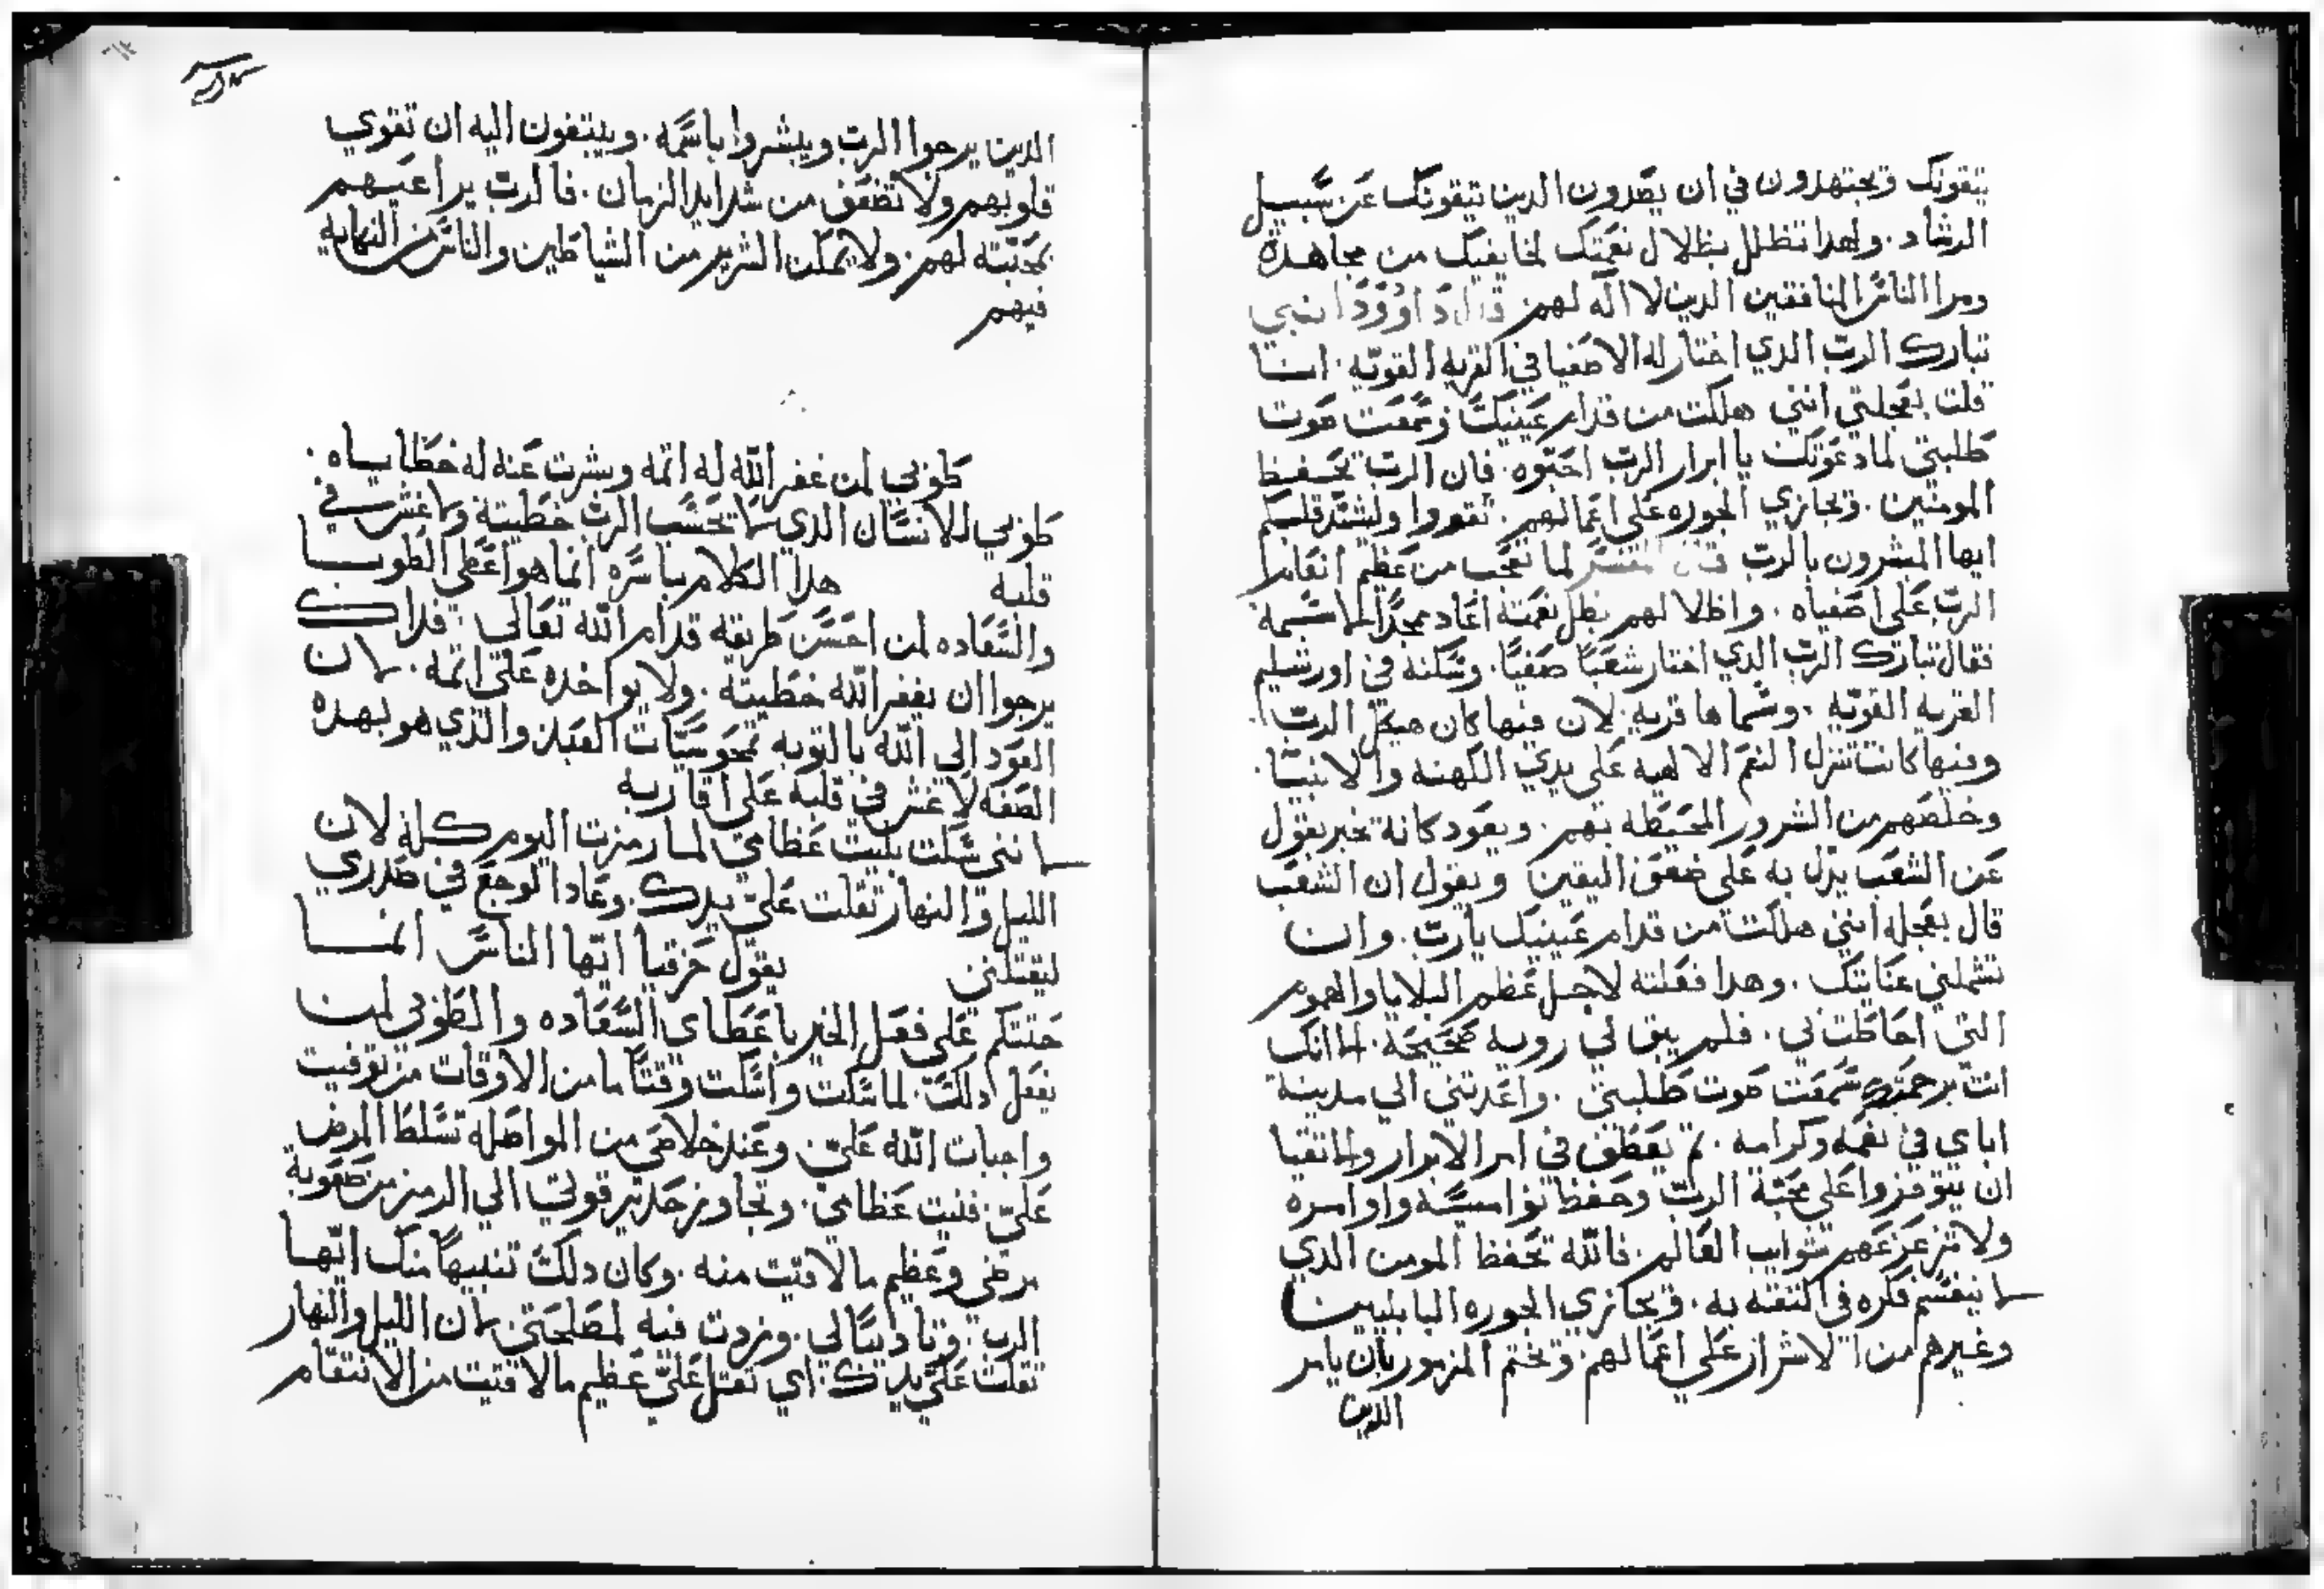 يتقونك ويجتهدون في ان يصدون الدين تيقونك عن سبيل
الرشاد. ولهدا تظلل بظلال نعمتك لخايفيك من مجاهدة
ومرا الناس المنافقين الدين لا اله لهم قال داوود النبي
تبارك الرب الدي اختار له الاصفيا في القريه القويه. انا
قلت بعجلتي انني هلكت من قدام عينيك وسمعت صوت
طلبتي لما دعوتك يا ابرار الرب احبوه. فان الرب يحفظ
المومنين. ويجازي الجوره على اعمالهم. تقووا وليشتد قلبكم
ايها المبشرون بالرب قال المفسر لما تعجب من عظيم انعام
الرب على اصفياه. واظلالهم بظل نعمته اعاد مجدا لاسمه
فقال تبارك الرب الدي اختار شعبا صفيا. وسكنه في اورشليم
القريه القويه. وسماها قريه لان فيها كان هيكل الرب.
وفيها كانت تنزل النعم الالهيه على يدي الكهنه والانبيا.
وخلصهم من الشرور المحيطه بهم. ويعود كانه يخبر بقول
عن الشعب يدل به على ضعف اليقين ويقول ان الشعب
قال بعجله انني هلكت من قدام عينيك يا رب. وان
تشملني عنايتك. وهدا فعلته لاجل عظم البلايا والهموم
التي احاطت بي. فلم يبق لي رويه صحيحة. الا انك
انت برحمتك سمعت صوت طلبتي. واعدتني الي مدينة
اباي في نعمه وكرامه. ثم يعطف في امر الابرار والاتقيا
ان يتوفروا على محبة الرب وحفظ نواميسه واوامره
ولا تزعزعهم شوايب العالم. فالله يحفظ المومن الدي
لا ينقسم فكره في التقته به. ويجازي الجوره البابليين
وغيرهم من الاشرار على اعمالهم. ويختم المزمور بان يامر
الدين
الدين يرجوا الرب ويبشروا باسمه. ويبتغون اليه ان تقوي
قلوبهم ولا تضعف من شدايد الزمان. فالرب يراعيهم
بمحبته لهم. ولا يمكن الشرير من الشياطين والناس النهايه
فيهم
طوبي لمن غفر الله له اتمه وسترت عنه له خطاياه.
طوبي للانسان الدي لا يحسب الرب خطيته ولا غش في
قلبه هدا الكلام باسره انما هو اعطى الطوبا
والسعاده لمن احسن طريقه قدام الله تعالي. فداك
يرجوا ان يغفر الله خطيته. ولا يواخده على اتمه. لان
العود الى الله بالتوبه تمحو سيات العبد والدي هو بهده
الصفه لا غش في قلبه على اقاربه
لانني سكت بليت عظامي لما رمزت اليوم كله لان
الليل والنهار تقلت علي يدك. وعاد الوجع في صدري
ليقتلني يقول حزقيا ايها الناس انما
حتتكم على فعل الخير باعطاي السعاده والطوبي لمن
يفعل دلك. لما سكت وامسكت وقتا ما من الاوقات من توفيت
واجبات الله علي. وعند خلاصي من المواصله تسلط المرض
علي. فنيت عظامي. وتجاوز حد تبر قولي الي الرمز من صعوبة
مرضي وعظيم ما لاقيت منه. وكان دلك تنبيها منك ايها
الرب. وتاديبا لي. وزدت فيه لمصلحتي لان الليل والنهار
تقلت علي يدك. اي تقل علي عظيم ما لاقيت من الانتقام